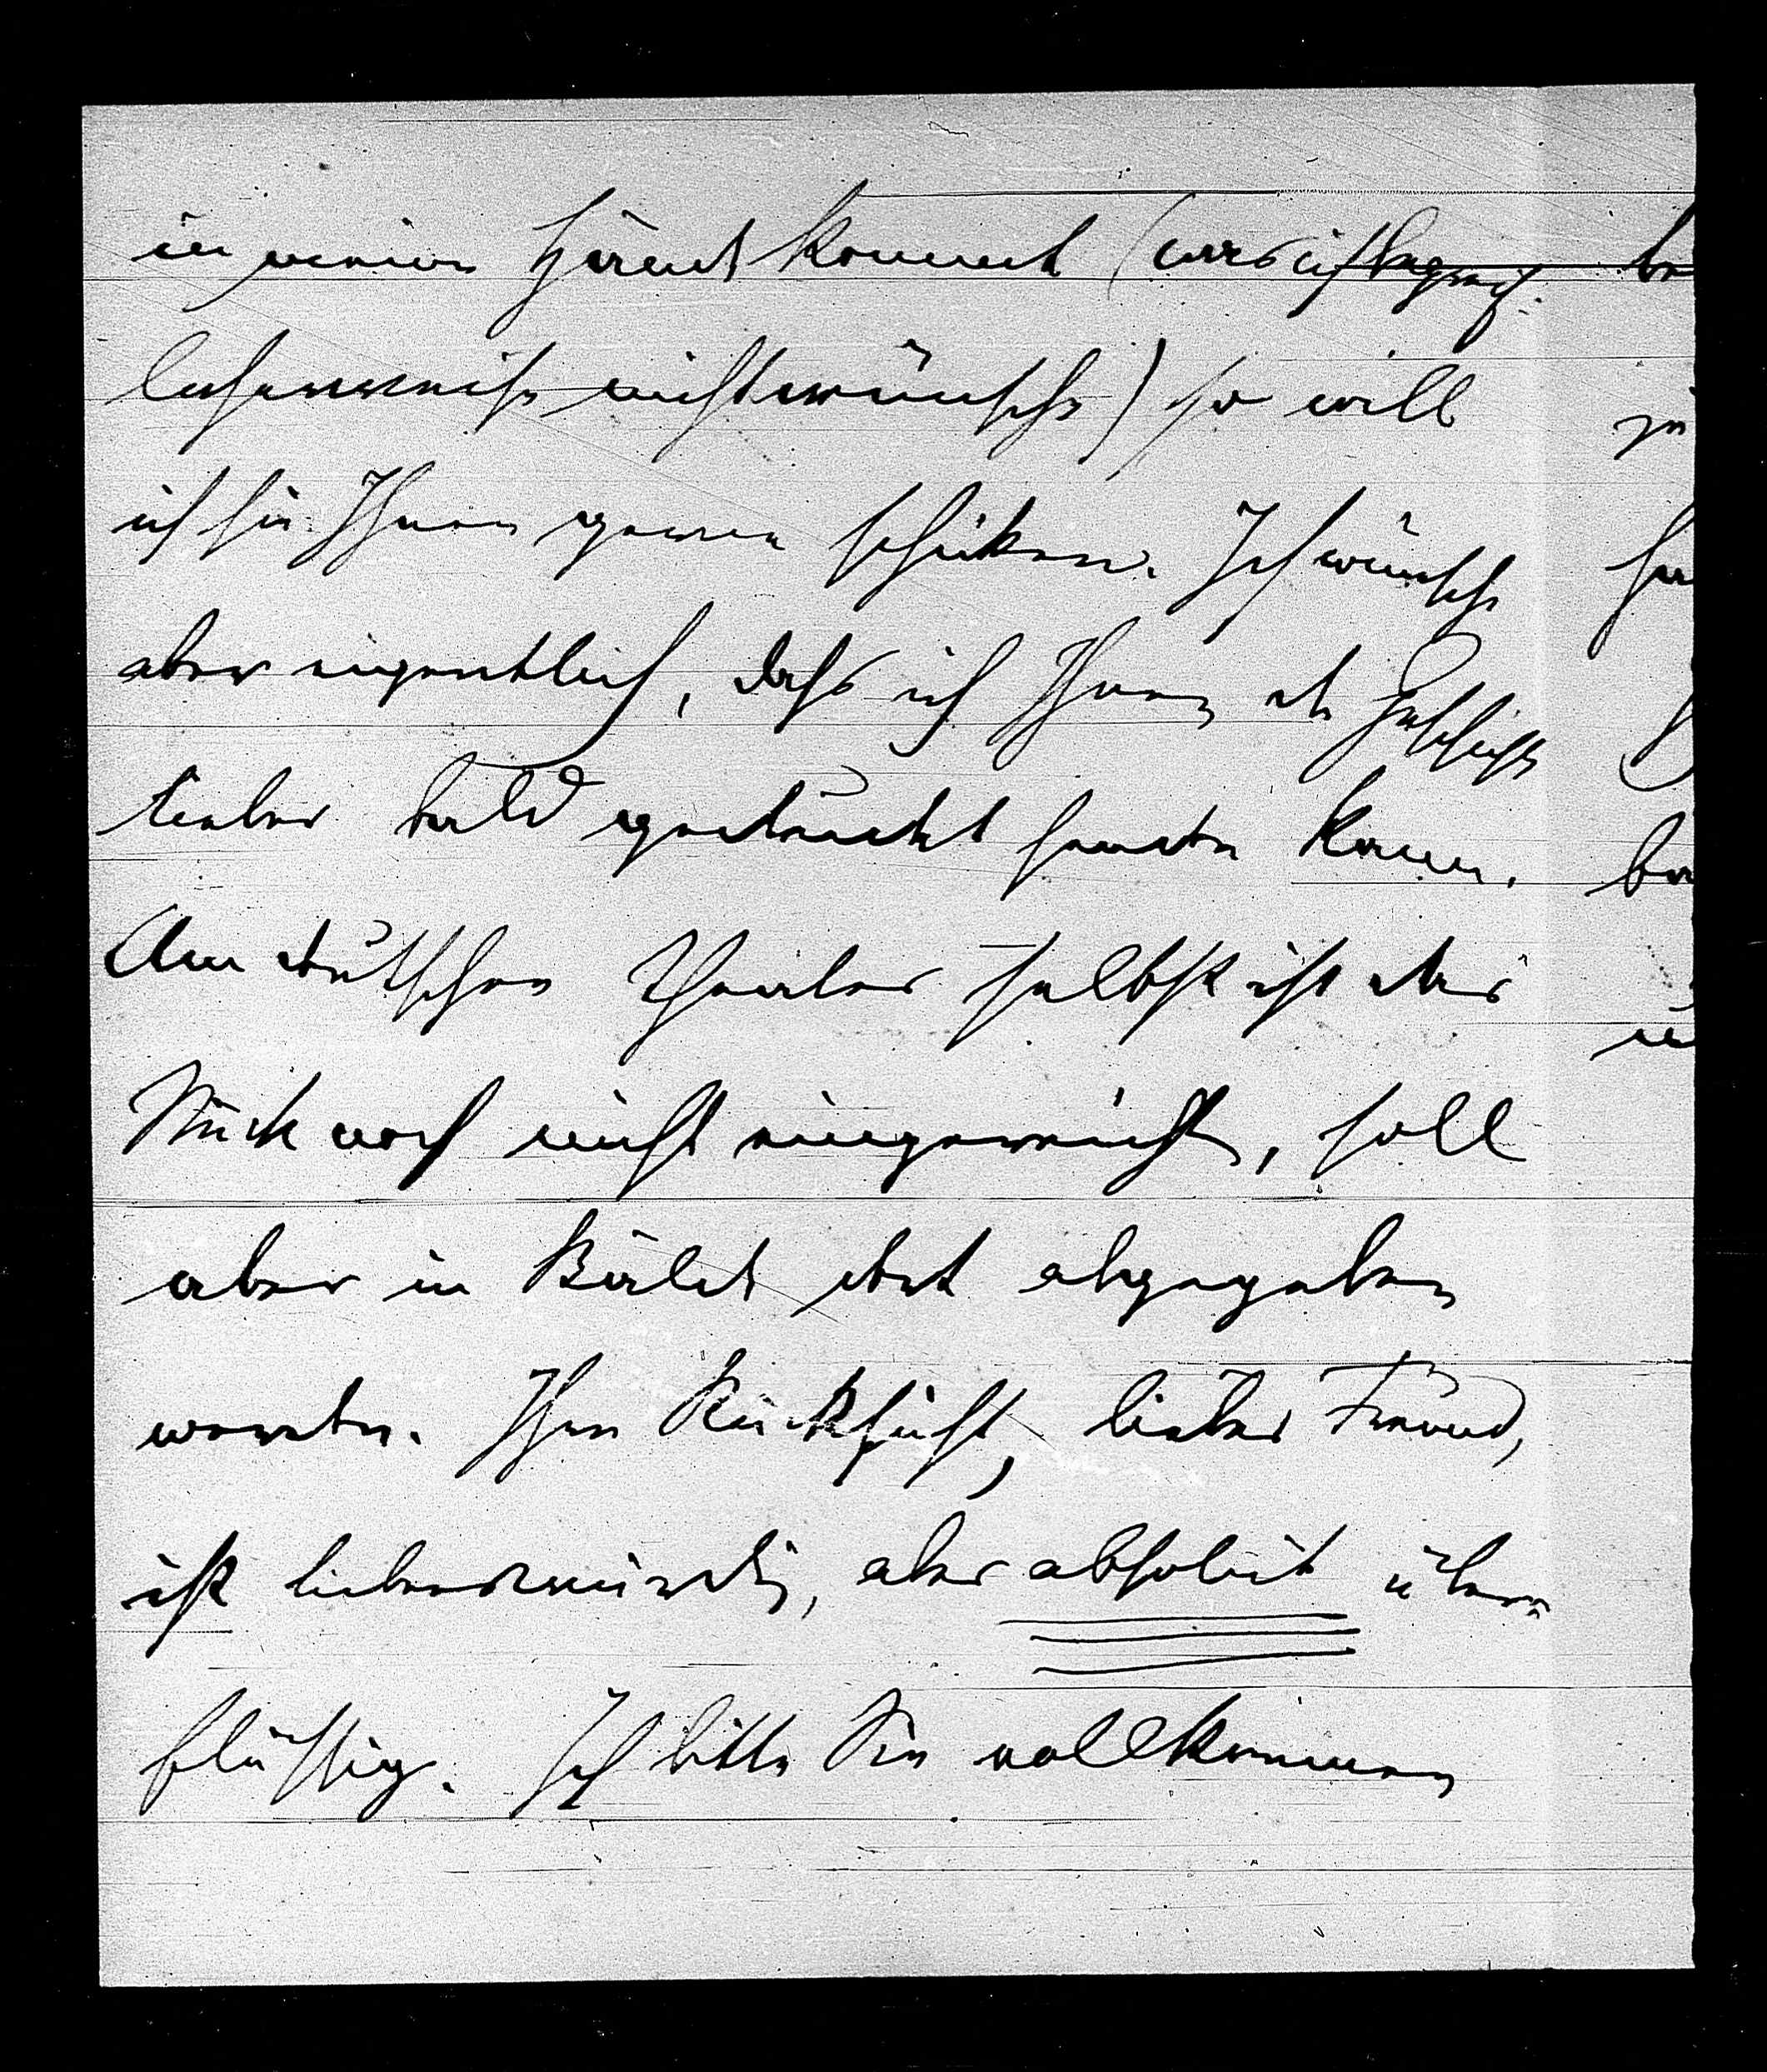 in meine Hände kommt (was ich begreif-
licherweise nicht wünsche) so will
ich sie Ihnen gerne schicken. Ich wünsche
aber eigentlich, dass ich Ihnen die Geschichte
lieber bald gedruckt senden kann.
Am deutschen Theater selbst ist das
Stück noch nicht eingereicht, soll
aber in Bälde dort abgegeben
werden. Ihre Rücksicht, lieber Freund,
ist liebenswürdig, aber absolut über-
flüssig. Ich bitte Sie vollkommen